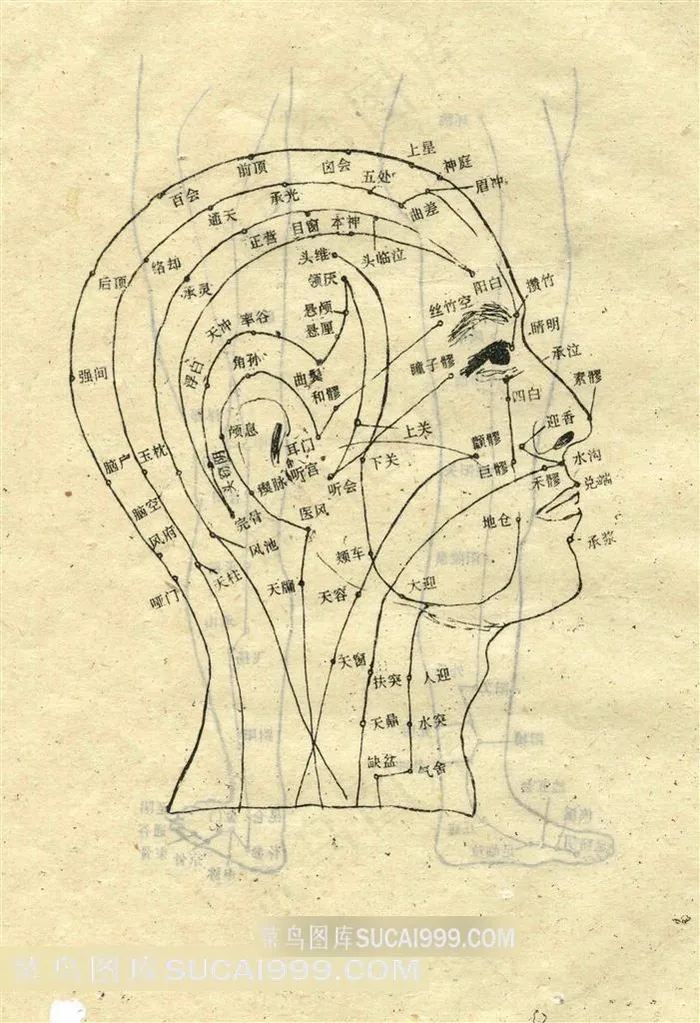 上星
神庭
囟会
前顶
五处
眉冲
百会
承光
曲差
通天
目窗
本神
正营
头维
头临泣
络却
后顶
承灵
颔厌
阳白
攒竹
悬颅
丝竹空
天冲
率谷
悬厘
睛明
角孙
承泣
强间
浮白
曲鬓
瞳子髎
素髎
和髎
四白
迎香
颅息
上关
颧髎
耳门
脑户
玉枕
头窍阴
听宫
下关
巨髎
水沟
瘈脉
听会
禾髎
兑端
脑空
完骨
医风
地仓
风府
风池
颊车
承浆
天柱
天牖
大迎
哑门
天容
天窗
扶突
人迎
天鼎
水突
缺盆
气舍
菜鸟图库SUCAI999.COM
菜鸟图库SUCAI999.COM